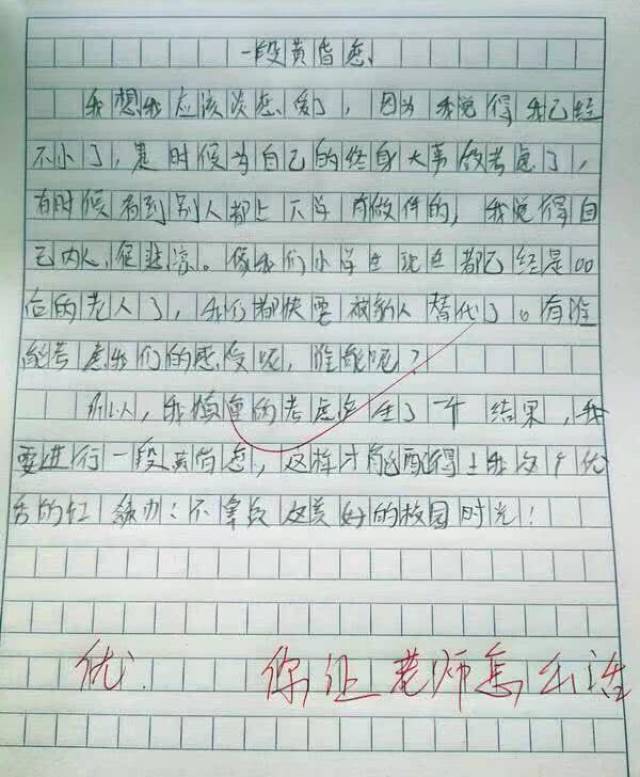 一段黄昏恋
我想我应该谈恋爱了，因为我觉得我已经
不小了，是时候为自己的终身大事做考虑了，
有时候看到别人都上下学有做伴的，我觉得自
己内人，很悲凉。像我们小学生现在都已经是00
后的老人了，我们都快要被新人替代了。有谁
能考虑我们的感受呢，谁能呢？
所以，我慎重的考虑产生了一个结果，我
要进行一段黄昏恋，这样才能配得上我这个优
秀的红领巾！不辜负这美好的校园时光！
优 你让老师怎么活